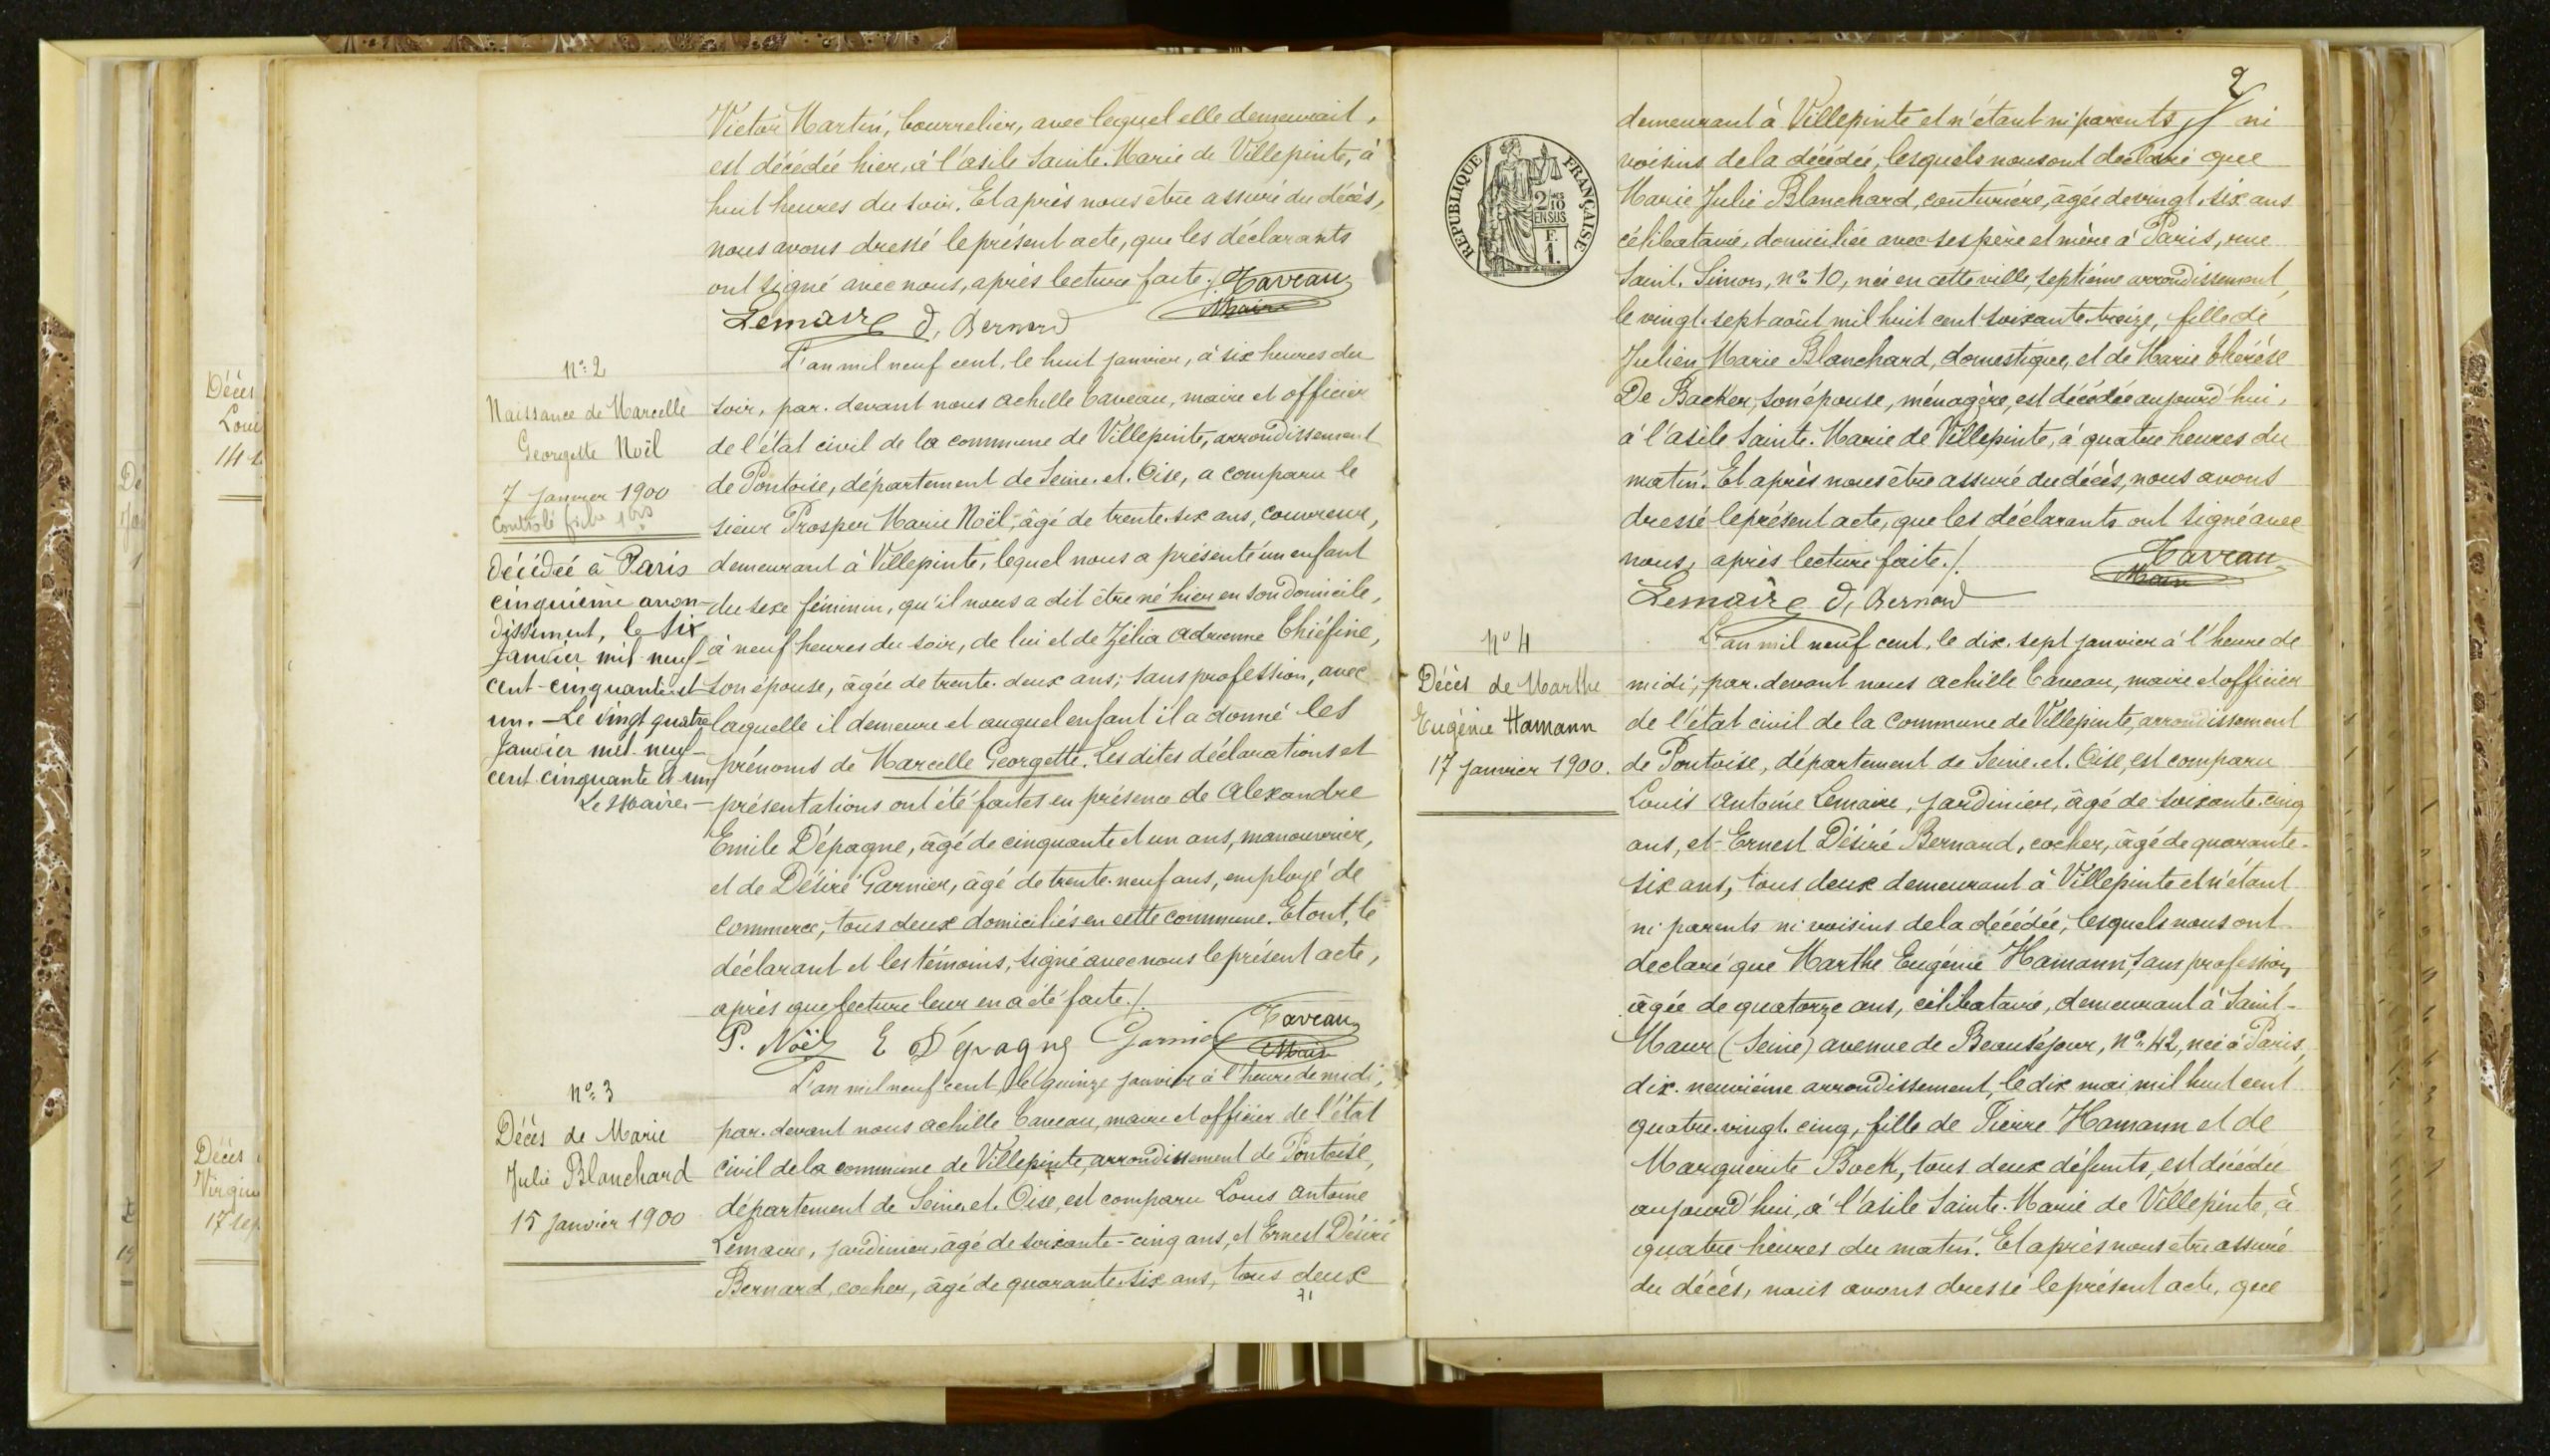 Victor Martin, bourrelier, avec lequel elle demeurait,
est décédée hier, à l'asile Sainte-Marie de Villepinte, à
huit heures du soir. Et après nous être assuré du décès,
nous avons dressé le présent acte, que les déclarants
ont signé avec nous, après lecture faite./. Taveau
Maire
Lemaire D, Bernard
n° 2
Naissance de Marcelle
Georgette Noël
7 Janvier 1900
Contrôlé fiche 1 bis
décédée à Paris
cinquième arron-
dissement, le six
Janvier mil-neuf-
cent-cinquante et
un. - Le vingt quatre
Janvier mil-neuf-
cent-cinquante et un
Le Maire -
L'an mil neuf cent, le huit janvier, à six heures du
soir, par-devant nous Achille Taveau, maire et officier
de l'état civil de la commune de Villepinte, arrondissement
de Pontoise, département de Seine-et-Oise, a comparu le
sieur Prosper Marie Noël, âgé de trente-six ans, couvreur,
demeurant à Villepinte, lequel nous a présenté un enfant
du sexe féminin, qu'il nous a dit être né hier en son domicile,
à neuf heures du soir, de lui et de Zélia Adrienne Chiéfine,
son épouse, âgée de trente-deux ans, sans profession, avec
laquelle il demeure et auquel enfant il a donné les
prénoms de Marcelle Georgette. Les dites déclarations et
présentations ont été faites en présence de Alexandre
Emile Dépagne, âgé de cinquante et un ans, manouvrier,
et de Désiré Garnier, âgé de trente-neuf ans, employé de
commerce, tous deux domiciliés en cette commune. Et ont, le
déclarant et les témoins, signé avec nous le présent acte,
après que lecture leur en a été faite./.
P. Noël E Dépagne Garnier Taveau
Maire
n° 3
Décès de Marie
Julie Blanchard
15 janvier 1900
L'an mil neuf cent, le quinze janvier à l'heure de midi,
par-devant nous Achille Taveau, maire et officier de l'état
civil de la commune de Villepinte, arrondissement de Pontoise,
département de Seine-et-Oise, est comparu Louis Antoine
Lemaire, jardinier, âgé de soixante-cinq ans, et Ernest Désiré
Bernard, cocher, âgé de quarante-six ans, tous deux
71
2
REPUBLIQUE FRANÇAISE
2/10
EN SUS
F.
1.
demeurant à Villepinte et n'étant ni parents ni
voisins de la décédée, lesquels nous ont déclaré que
Marie Julie Blanchard, couturière, âgée de vingt-six ans
célibataire, domiciliée avec ses père et mère à Paris, rue
Saint-Simon, n° 10, née en cette ville, septième arrondissement,
le vingt-sept août mil huit cent soixante-treize, fille de
Julien Marie Blanchard, domestique, et de Marie Thérèse
De Backer, son épouse, ménagère, est décédée aujourd'hui,
à l'asile Sainte-Marie de Villepinte, à quatre heures du
matin. Et après nous être assuré du décès, nous avons
dressé le présent acte, que les déclarants ont signé avec
nous, après lecture faite./. Taveau
Maire
Lemaire D, Bernard
n° 4
Décès de Marthe
Eugénie Hamann
17 janvier 1900.
L'an mil neuf cent, le dix-sept janvier à l'heure de
midi, par-devant nous Achille Taveau, maire et officier
de l'état civil de la commune de Villepinte, arrondissement
de Pontoise, département de Seine-et-Oise, est comparu
Louis Antoine Lemaire, jardinier, âgé de soixante-cinq
ans, et Ernest Désiré Bernard, cocher, âgé de quarante-
six ans, tous deux demeurant à Villepinte et n'étant
ni parents ni voisins de la décédée, lesquels nous ont
declaré que Marthe Eugénie Hamann, sans profession,
âgée de quatorze ans, célibataire, demeurant à Saint-
Maur (Seine) avenue de Beauséjour, n° 42, née à Paris,
dix-neuvième arrondissement, le dix mai mil huit cent
quatre-vingt-cinq, fille de Pierre Hamann et de
Marguerite Bock, tous deux défunts, est décédée
aujourd'hui, à l'asile Sainte-Marie de Villepinte, à
quatre heures du matin. Et après nous être assuré
du décès, nous avons dressé le présent acte, que
Décès
Loui
14
Décès
Virgin
17 sep